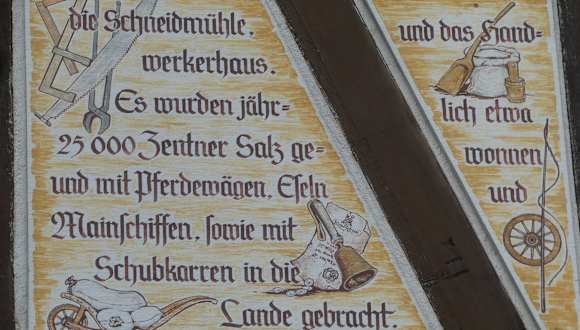 die Schneidmühle, und das Hand=
werkerhaus.
Es wurden jähr= lich etwa
25 000 Zentner Salz ge= wonnen
und mit Pferdewägen, Eſeln und
Mainſchiffen, ſowie mit
Schubkarren in die
Lande gebracht.